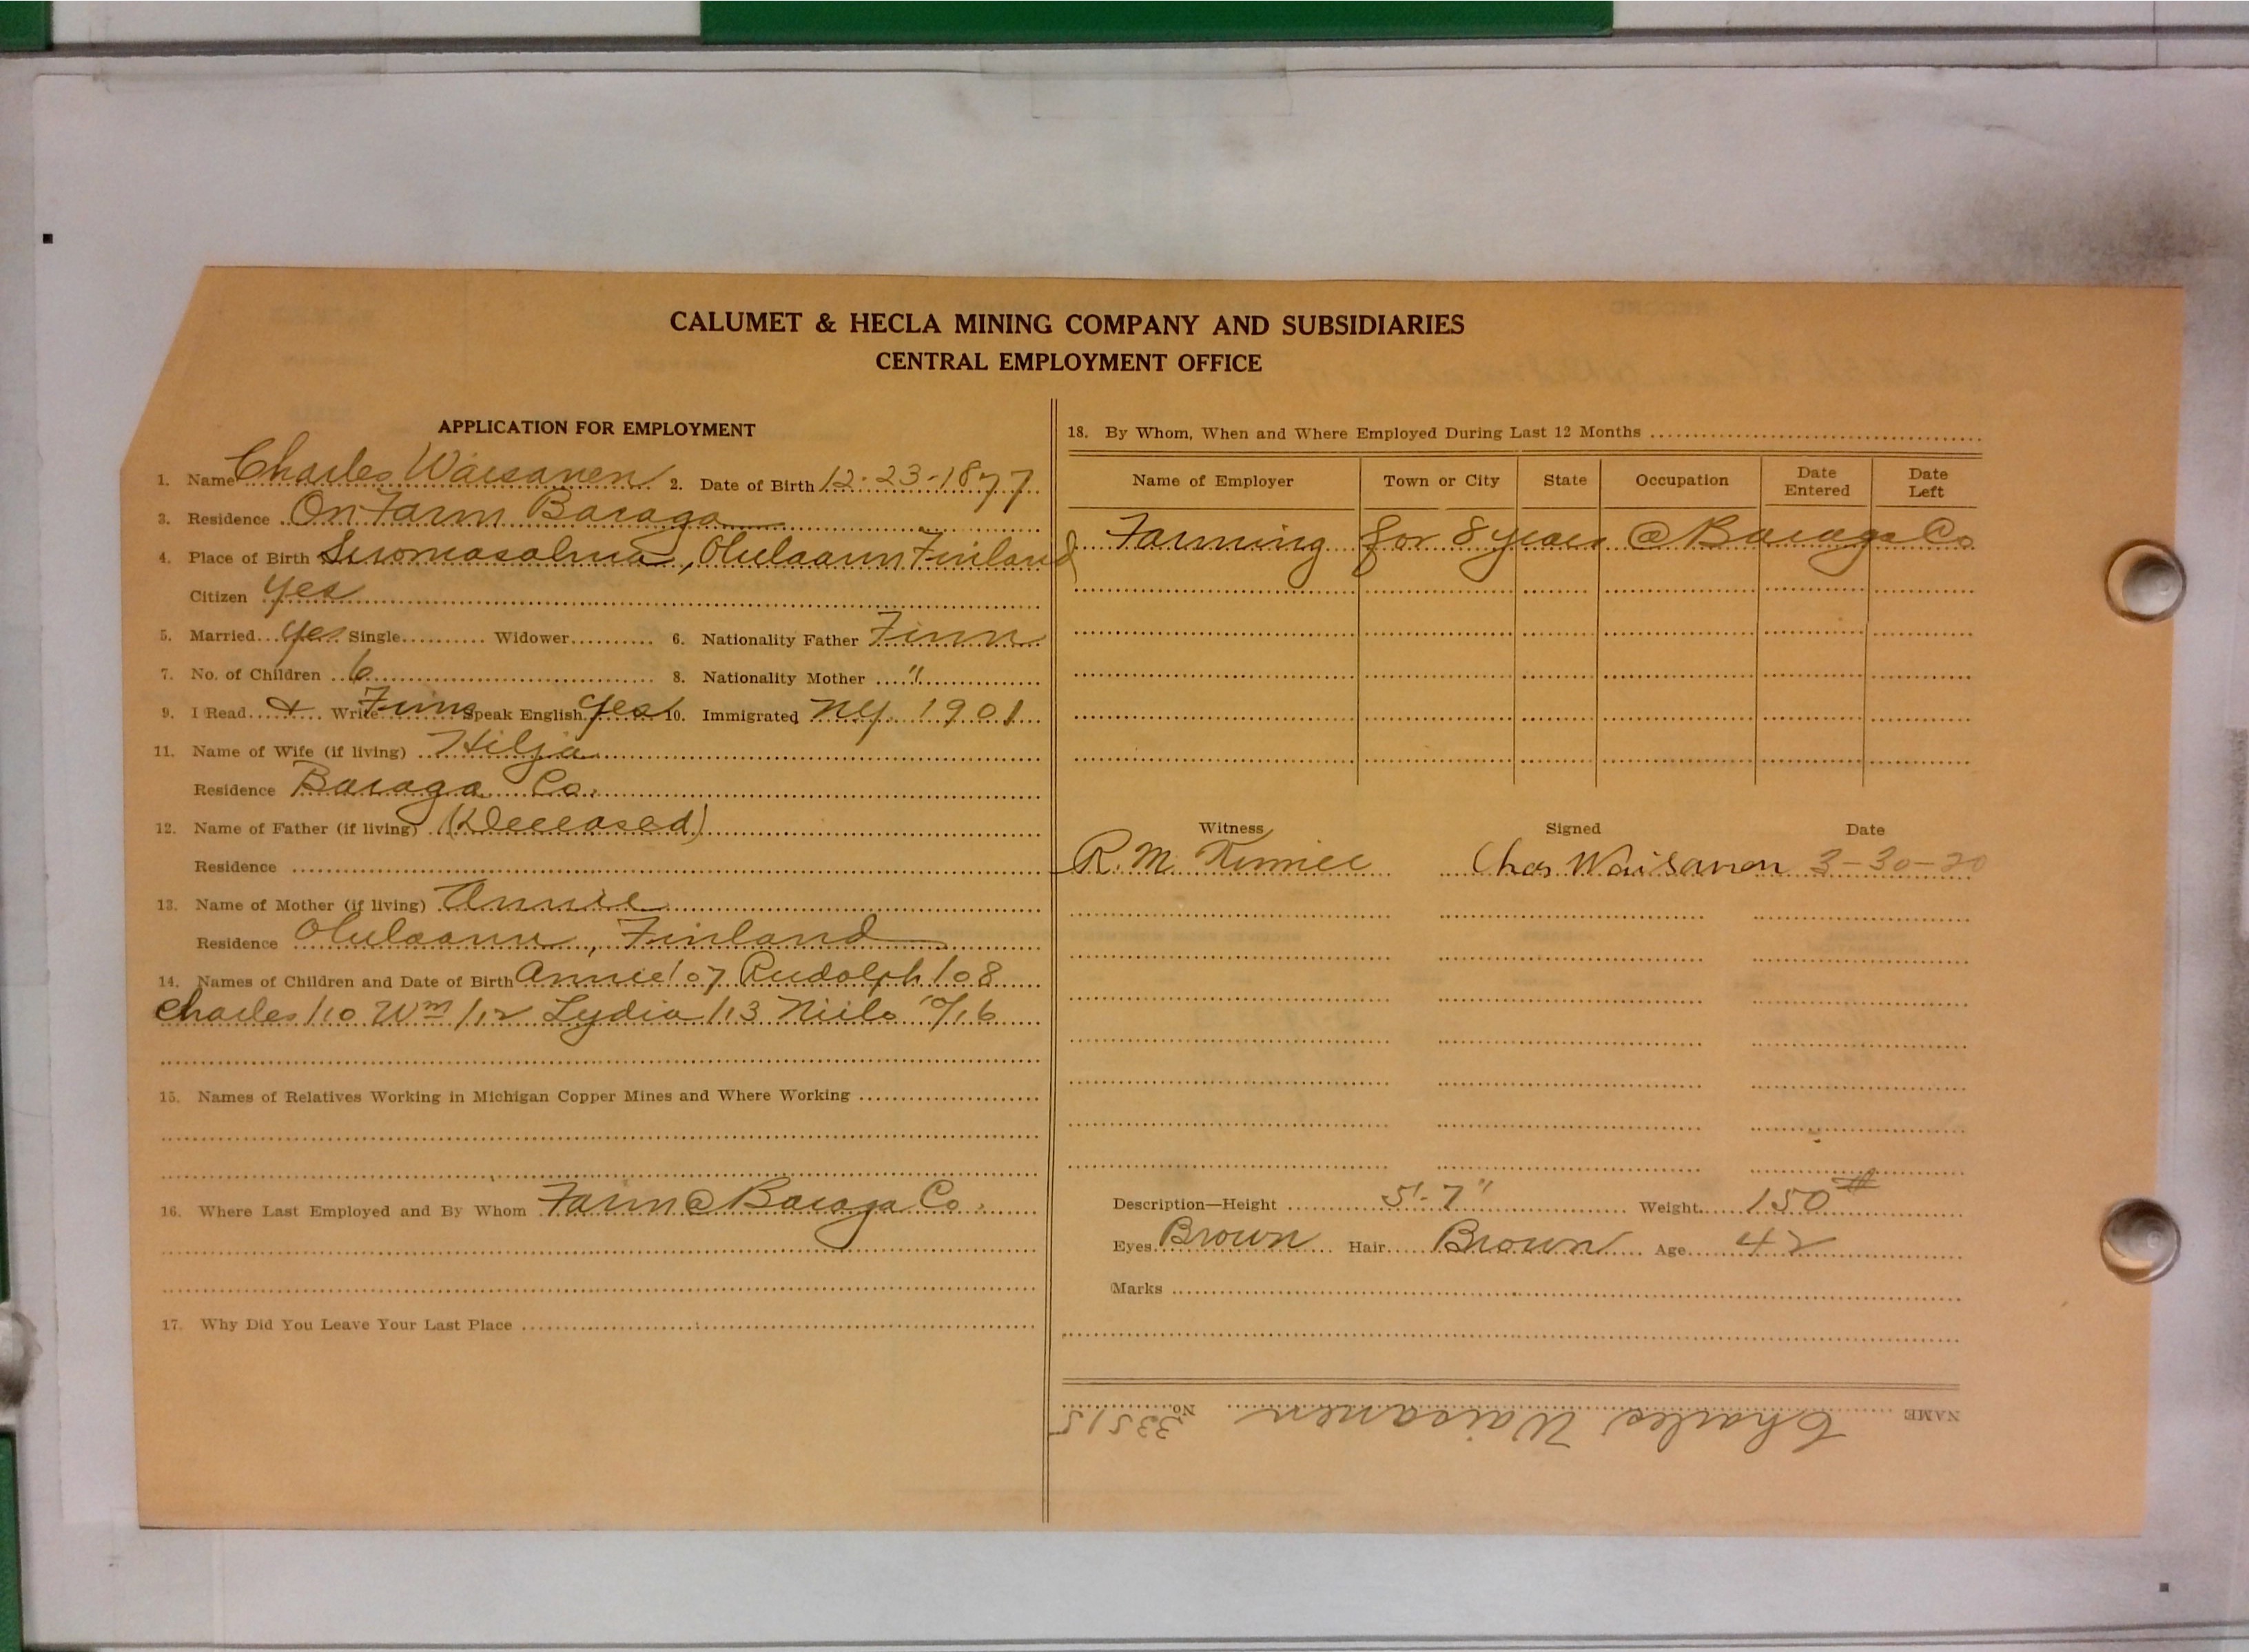 CALUMET & HECLA MINING COMPANY AND SUBSIDIARIES
CENTRAL EMPLOYMENT OFFICE
APPLICATION FOR EMPLOYMENT
1. Name Charles Waisanen 2. Date of Birth 12-23-1877
3. Residence On Farm Baraga
4. Place of Birth Suomasalmi, Olulaann Finland
Citizen Yes
5. Married Yes Single Widower 6. Nationality Father Finn
7. No. of Children 6 8. Nationality Mother "
9. I Read & Write Finn Speak English Yes 10. Immigrated NY. 1901
11. Name of Wife (if living) Hilja
Residence Baraga Co.
12. Name of Father (if living) (Deceased)
Residence
13. Name of Mother (if living) Annie
Residence Olulaann, Finland
14. Names of Children and Date of Birth Annie/07 Rudolph/08
Charles/10 Wm/12 Lydia/13 Niilo /16
15. Names of Relatives Working in Michigan Copper Mines and Where Working
16. Where Last Employed and By Whom Farm @ Baraga Co.
17. Why Did You Leave Your Last Place
18. By Whom, When and Where Employed During Last 12 Months
Name of Employer Town or City State Occupation Date Entered Date Left
Farming for 8 years @ Baraga Co
Witness Signed Date
R. M. Chas Waisanen 3-30-20
Description—Height 5'-7" Weight 150#
Eyes Brown Hair Brown Age 42
Marks
NAME Charles Waisanen No. 33515